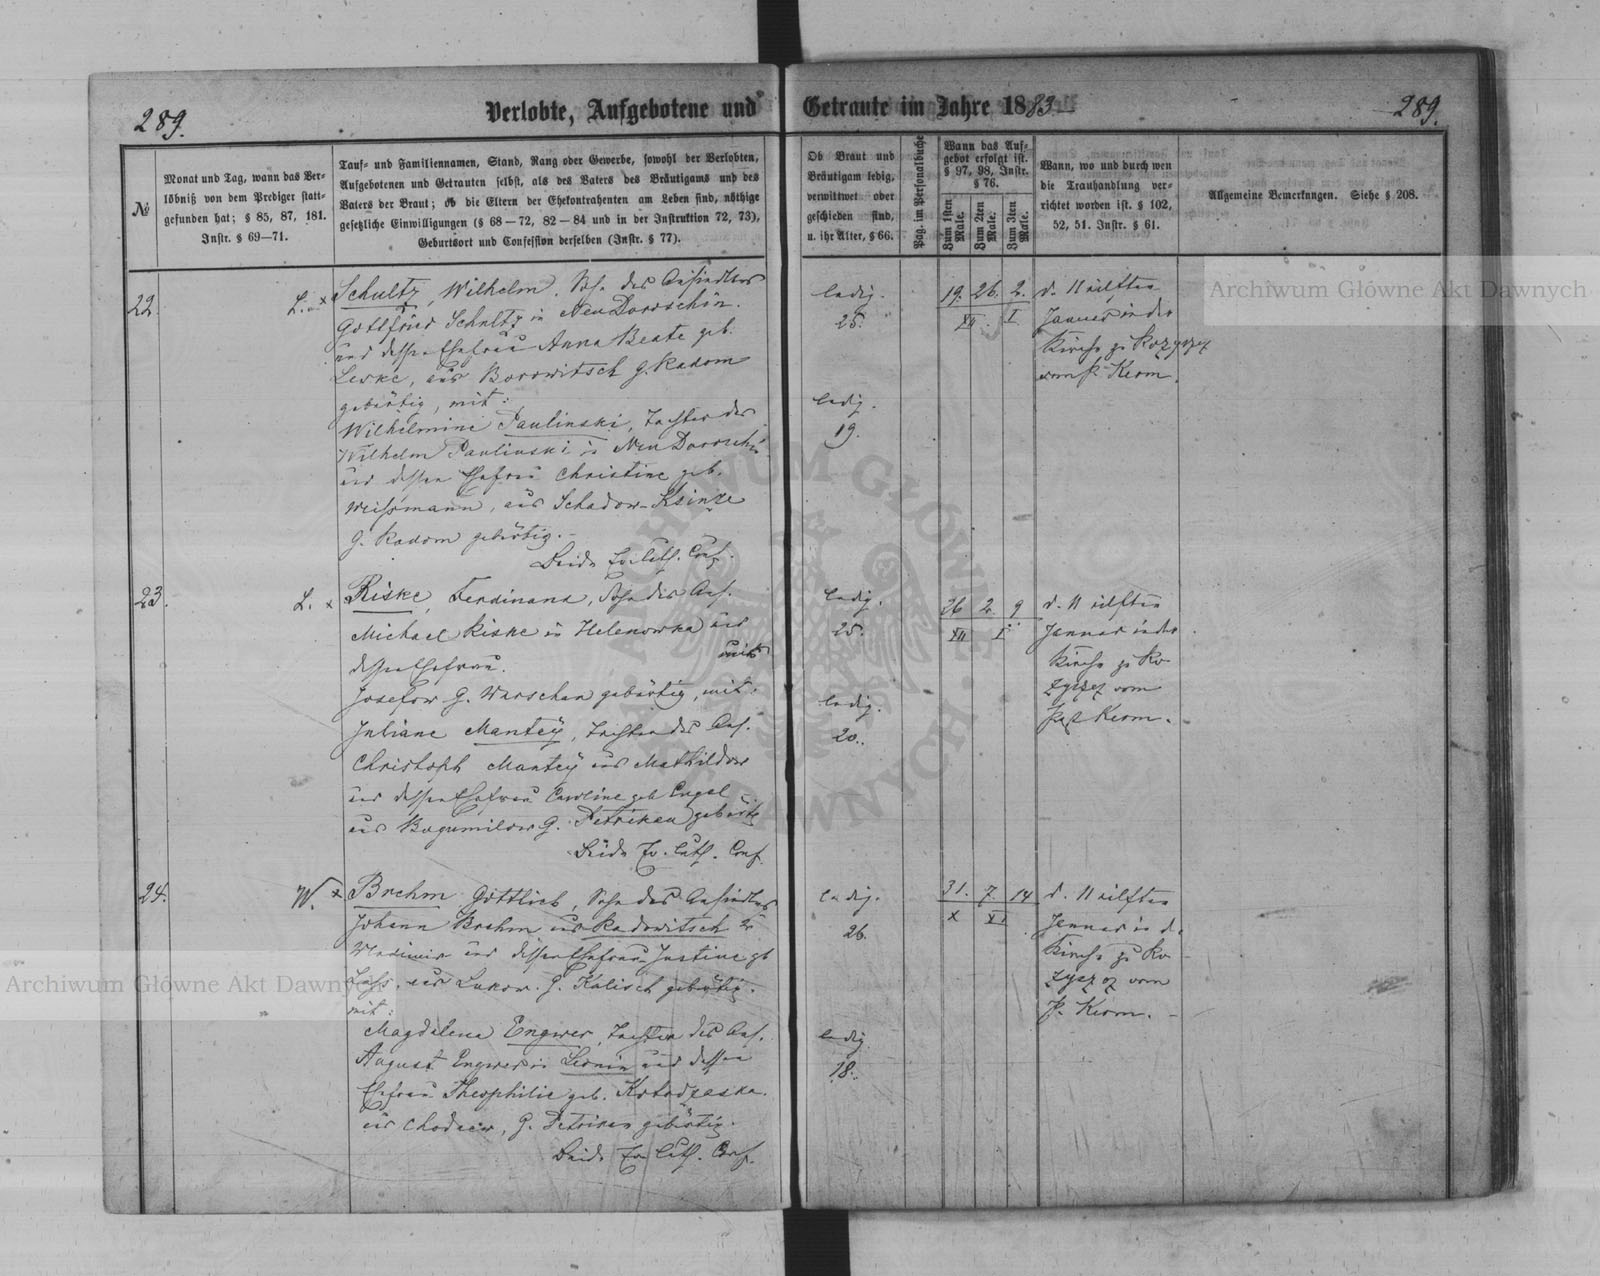 289.
Verlobte, Aufgebotene und Getraute im Jahre 1883
289.
№
Monat und Tag, wann das Ver-
löbniß von dem Prediger statt-
gefunden hat; § 85, 87, 181.
Instr. § 69—71.
Tauf- und Familiennamen, Stand, Rang oder Gewerbe, sowohl der Verlobten,
Aufgebotenen und Getrauten selbst, als des Vaters des Bräutigams und des
Vaters der Braut; ob die Eltern der Ehekontrahenten am Leben sind, nöthige
gesetzliche Einwilligungen (§ 68—72, 82—84 und in der Instruktion 72, 73),
Geburtsort und Confession derselben (Instr. § 77).
Ob Braut und
Bräutigam ledig,
verwittwet oder
geschieden sind,
u. ihr Alter, § 66.
Pag. im Personalbuche
Wann das Auf-
gebot erfolgt ist.
§ 97, 98, Instr.
§ 76.
Zum 1sten Male.
Zum 2ten Male.
Zum 3ten Male.
Wann, wo und durch wen
die Trauhandlung ver-
richtet worden ist. § 102,
52, 51. Instr. § 61.
Allgemeine Bemerkungen. Siehe § 208.
22.
L. x
Schultz, Wilhelm, Sohn des Ansiedlers
Gottfried Schultz in Neu Doroschin
und dessen Ehefrau Anna Beate geb.
Leske, aus Borowitsch G. Radom
gebürtig, mit:
Wilhelmine Paulinski, Tochter des
Wilhelm Paulinski in Neu Dorosch
und dessen Ehefrau Christine geb.
Weissmann, aus Schadow-Ksinze
G. Radom gebürtig.-
Beide Ev. Luth. Conf.
ledig.
25.
ledig.
19.
19. 26. 2.
XII. I
d. 11 eilften
Januar in der
Kirche zu Rozyszcz
vom P. Kerm.
23.
L. x
Riske, Ferdinand, Sohn des Ans.
Michael Riske in Helenowka und
dessen Ehefrau.
Josefow G. Warschau gebürtig, mit:
Juliane Mantey, Tochter des Ans.
Christoph Mantey aus Mathildow
und dessen Ehefrau Caroline geb Engel
aus Bogumilow G. Petrikau gebürtig
Beide Ev. Luth. Conf.
ledig.
25.
ledig.
20.
26 2. 9
XII I
d. 11 eilften
Januar in der
Kirche zu Ro-
zyszcz vom
Past Kerm.
24.
W. x
Brehm Gottlieb, Sohn des Ansiedlers
Johann Brehm aus Radowitsch
Wladimir und dessen Ehefrau Justine gb
aus Lukow. G. Kalisch gebürtig.
mit:
Magdalena Engwer, Tochter des Ans.
August Engwer in Leonin und dessen
Ehefrau Theophilie geb.
aus Chodaew, G. Petrikau gebürtig.
Beide Ev. Luth. Conf.
ledig.
26.
ledig.
18.
31. 7. 14
X XI
d. 11 eilften
Januar in d.
Kirche zu Ro-
zyszcz vom
P. Kerm.
Archiwum Główne Akt Dawnych
Archiwum Główne Akt Dawnych
ARCHIWUM GŁÓWNE AKT DAWNYCH